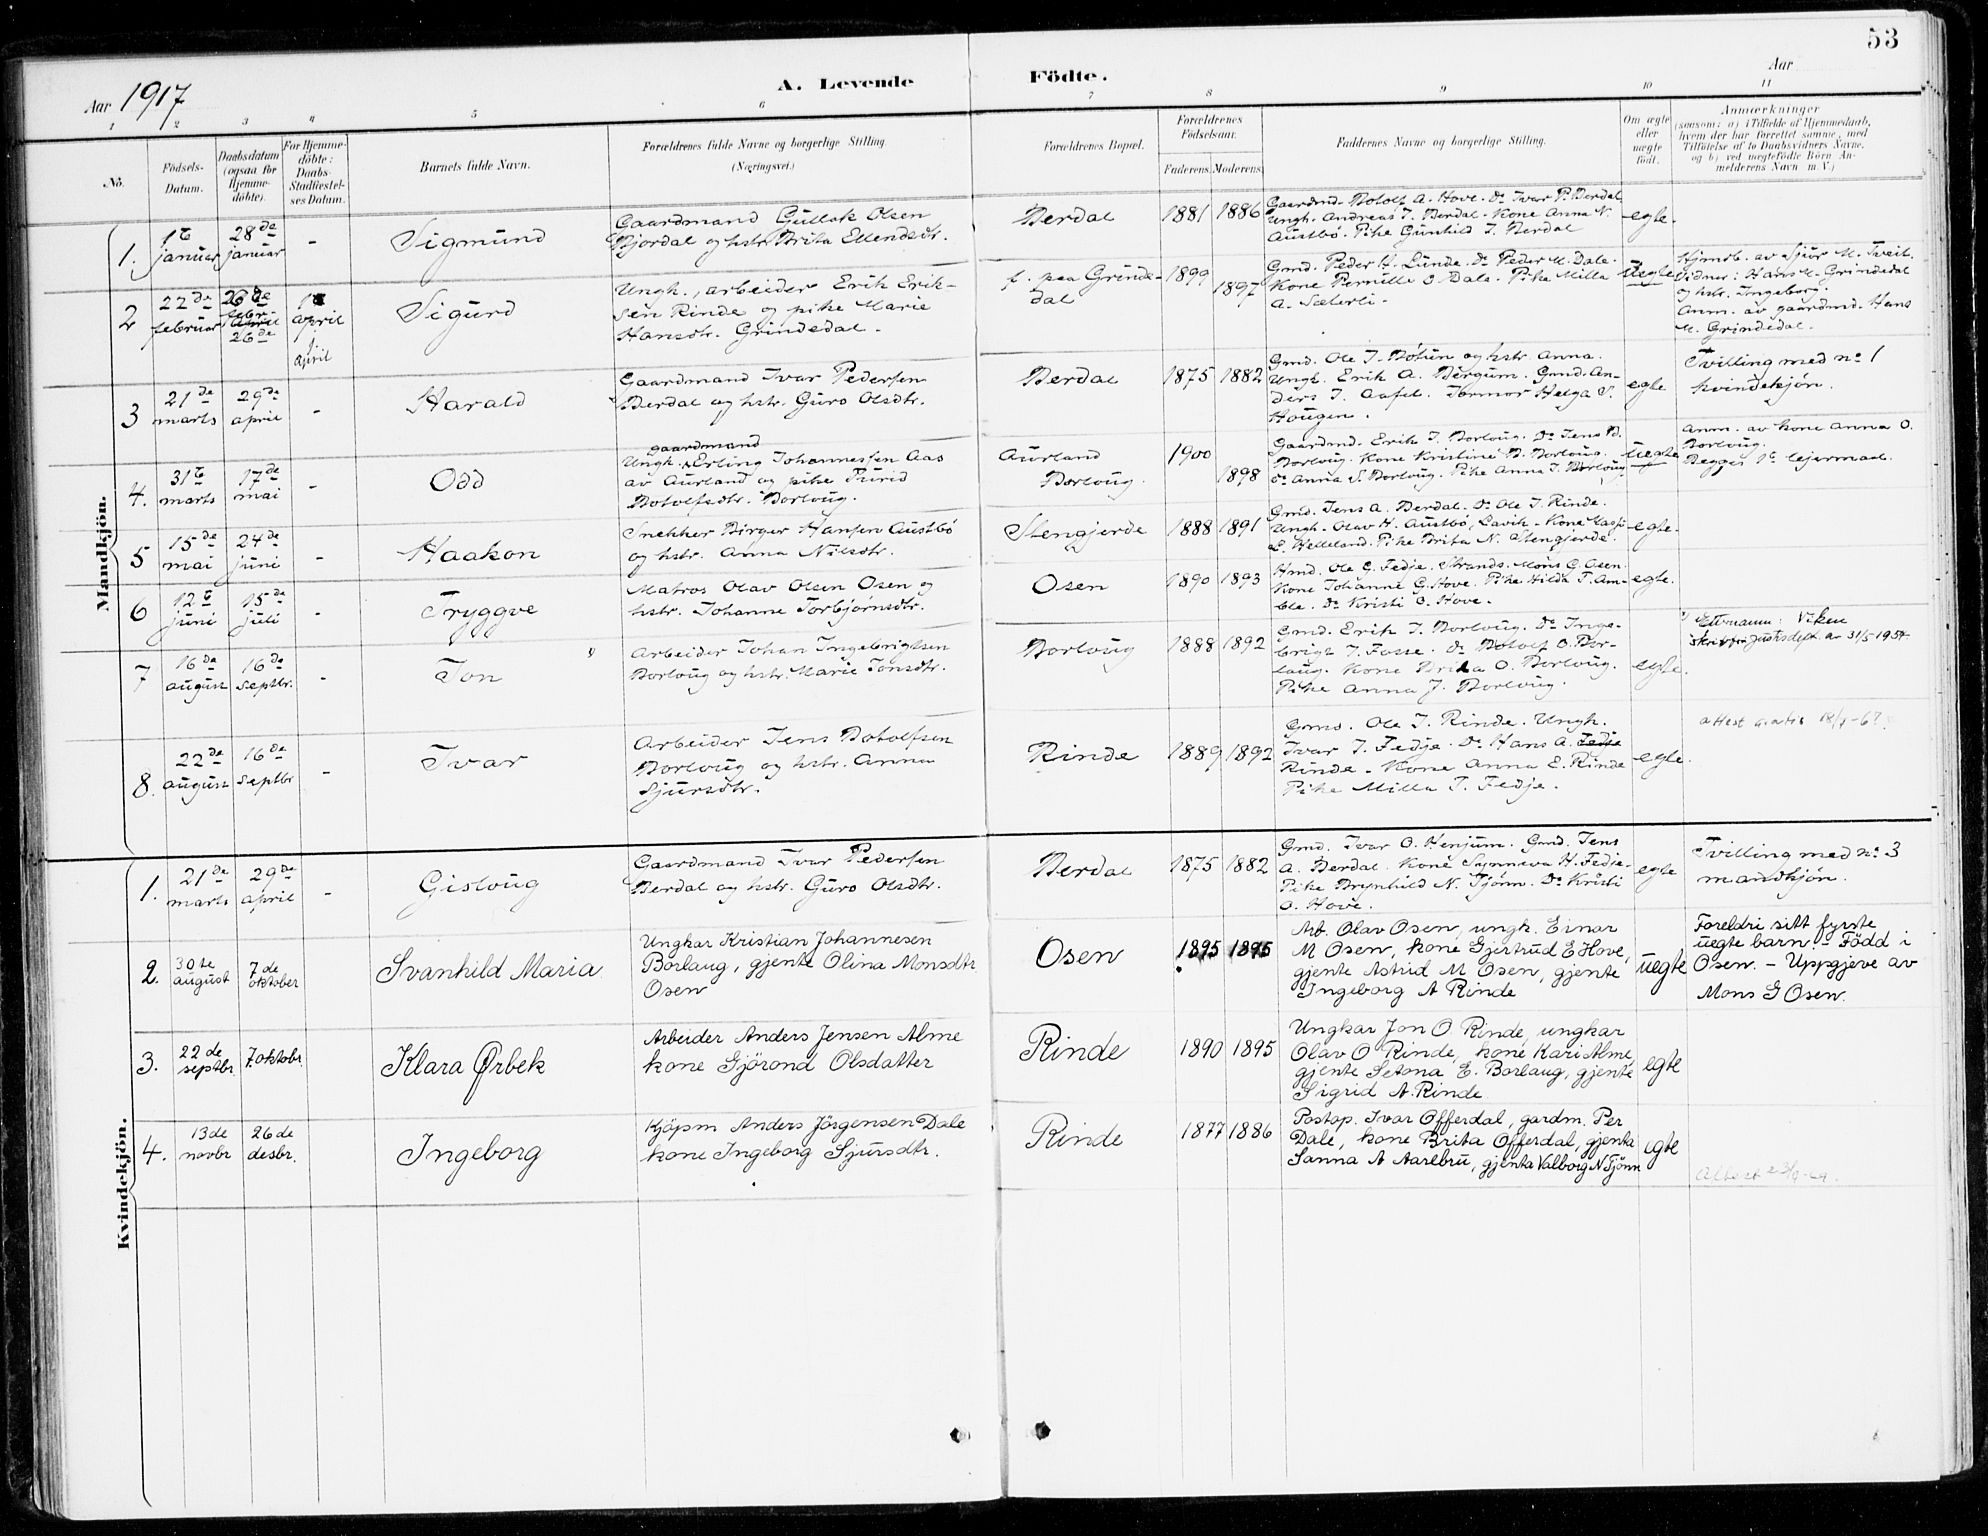 53
Aar 1917
A. Levende Födte.
Aar
1 2 3 4 5 6 7 8 9 10 11
No.
Födsels-
Datum.
Daabsdatum
(ogsaa for
Hjemme-
döbte).
For Hjemme-
döbte:
Daabs-
Stadfæstel-
ses Datum.
Barnets fulde Navn.
Forældrenes fulde Navne og borgerlige Stilling
(Næringsvei.)
Forældrenes Bopæl.
Forældrenes
Födselsaar.
Faderens. Moderens.
Faddernes Navne og borgerlige Stilling.
Om ægte
eller
uægte
født.
Anmærkninger
(saasom: a) i Tilfælde af Hjemmedaab,
hvem der har forrettet samme, med
Tilföielse af to Daabsvidners Navne,
og b) ved uægtefödte Börn An-
melderens Navn m. V.)
Mandkjön.
1.
1ste
januar
28de
januar
-
Sigmund
Gaardmand Gullak Olsen
Bjordal og hstr. Brita Ellendsdtr.
Berdal
1881 1886
Gaardmd. Botolf A. Hove. Do Ivar P. Berdal
Ungk. Andreas I. Berdal. Kone Anna N.
Austbö. Pike Gunhild I. Berdal
egte.
2
22de
februar
26de
febr.
april
26de
1
april
april
Sigurd
Ungk., arbeider Erik Erik-
sen Rinde og pike Marie
Hansdtr. Grindedal.
f. paa Grinde-
dal
1899
1897
Gmd. Peder H. Lunde. Do Peder M. Dale.
Kone Pernille O. Dale. Pike Milla
A. Sæterli.
uegte
Hjmdb. av Sjur M. Tveit.
Vidner: Hans M. Grindedal
og hstr. Ingeborg.
Anm. av gaardmd. Hans
M. Grindedal.
3
21de
marts
29de
april
-
Harald
Gaardmand Ivar Pedersen
Berdal og hstr. Guro Olsdtr.
Berdal
1875 1882
Gmd. Ole I. Bötun og hstr. Anna.
Ungk. Erik A. Bergum. Gmd. An-
ders I. Aafet. Jormor Helga S.
Haugen.
egte
Tvilling med no 1
kvindekjön.
4.
31te
marts
17de
mai
-
Odd
gaardmand
Ungk. Erling Johannessen Aas
av Aurland og pike Turid
Botolfsdtr. Borlaug.
Aurland
Borlaug.
1900
1898
Gaardmd. Erik I. Borlaug. Do Jens B.
Borlaug. Kone Kristine B. Borlaug.
Do Anna S. Borlaug. Pike Anna I. Borlaug
uegte
Anm. av kone Anna O.
Borlaug.
Begges 1ste leiermaal.
5
15de
mai
24de
juni
-
Haakon
Snekker Birger Hansen Austbö
og hstr. Anna Nilsdtr.
Stengjerde
1888 1891
Gmd. Jens A. Berdal. Do Ole I. Rinde.
Ungk. Olav H. Austbö, Lavik. Kone
E. Helleland. Pike Brita N. Stengjerde.
egte.
6
12te
juni
15de
juli
-
Tryggve
Matros Olav Olsen Osen og
hstr. Johanne Torbjörnsdtr.
Osen
1890 1893
Hmd. Ole G. Fedje, Strands. Möns G. Osen.
Kone Johanne G. Hove. Pike Hilda T. Am-
ble. Do Kristi O. Hove.
egte.
7
16de
august
16de
septbr.
-
Jon
Arbeider Johan Ingebrigtsen
Borlaug og hstr. Marie Jonsdtr.
Borlaug
1888 1892
Gmd. Erik I. Borlaug. Do Inge-
brigt I. Fosse. Do Botolf O. Bor-
laug. Kone Brita O. Borlaug.
Pike Anna J. Borlaug.
egte.
Etternamn: Viken
skriv fra justisdept. av 31/5 1954
8.
22de
august
16de
septbr
-
Ivar
Arbeider Jens Botolfsen
Borlaug og hstr. Anna
Sjursdtr.
Rinde
1889 1892
Gmd. Ole I. Rinde. Ungk.
Ivar I. Fedje. Do Hans A. Fedje
Rinde. Kone Anna E. Rinde
Pike Milla I. Fedje.
egte.
attest gratis 18/7-67
Kvindekjön.
1.
21de
marts
29de
april
-
Gislaug
Gaardmand Ivar Pedersen
Berdal og hstr. Guro Olsdtr.
Berdal
1875 1882
Gmd. Ivar O. Henjum. Gmd. Jens
A. Berdal. Kone Synneva H. Fedje.
Pike Brynhild N. Tjönn. Do Kristi
O. Hove.
egte
Tvilling med no 3
mandkjön.
2.
30te
august
7de
oktober
Svanhild Maria
Ungkar Kristian Johannesen
Borlaug, gjente Olina Monsdtr
Osen
Osen
1895 1895
Arb. Olav Osen, ungk. Einar
M Osen, kone Gjertrud E Hove,
gjente Astrid M Osen, gjente
Ingeborg A Rinde
uegte
Foreldri sitt fyrste
uegte barn. - Född i
Osen. - Uppgjeve av
Mons G Osen.
3.
22de
septbr.
7.oktobr.
Klara Ørbek
Arbeider Anders Jensen Alme
kone Gjörond Olsdatter
Rinde
1890 1895
Ungkar Jon O. Rinde, ungkar
Olav O Rinde, kone Kari Alme,
gjente Setona E. Borlaug, gjente
Sigrid A. Rinde
egte
4.
13de
novbr
26de
desbr.
Ingeborg
Kjöpm Anders Jörgensen Dale
kone Ingeborg Sjursdtr.
Rinde
1877 1886
Postop. Ivar Offerdal, gardm. Per
Dale, kone Brita Offerdal, gjenta
Sanna A Aarebru, gjenta Valborg N Tjönn
egte